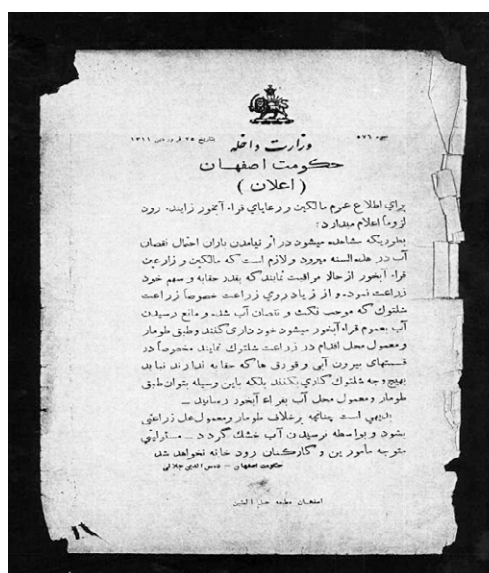 نمره ۵۷۶ بتاریخ ۲۵ فروردین ۱۳۱۱
وزارت داخله
حکومت اصفهان
( اعلان )
برای اطلاع عموم مالکین و رعایای قراء آبخور زاینده رود
لزوماً اعلام میدارد :
بطوریکه مشاهده میشود در اثر نیامدن باران احتمال نقصان
آب در هذه السنه میرود و لازم است که مالکین و زارعین
قراء آبخور از حالا مراقبت نمایند که بقدر حقابه و سهم خود
زراعت نموده و از زیاد روی زراعت خصوصاً زراعت
شلتوك که موجب نکث و نقصان آب شده و مانع رسیدن
آب بعموم قراء آبخور میشود خود داری کنند وطبق طومار
و معمول محل اقدام در زراعت شلتوك نمایند مخصوصاً در
قسمتهای بیرون آبی و قورق ها که حقابه ندارند نباید
بهیچ وجه شلتوك کاری بکنند بلکه باین وسیله بتوان طبق
طومار و معمول محل آب بقراء آبخور رسانید ــ
بدیهی است چنانچه برخلاف طومار ومعمول محل زراعتی
بشود و بواسطه نرسیدن آب خشك گردد ــ مسئولیتی
متوجه مأمورین و کارکنان رود خانه نخواهد شد
حکومت اصفهان ــ شمس الدین جلالی
اصفهان مطبعه حبل المتین